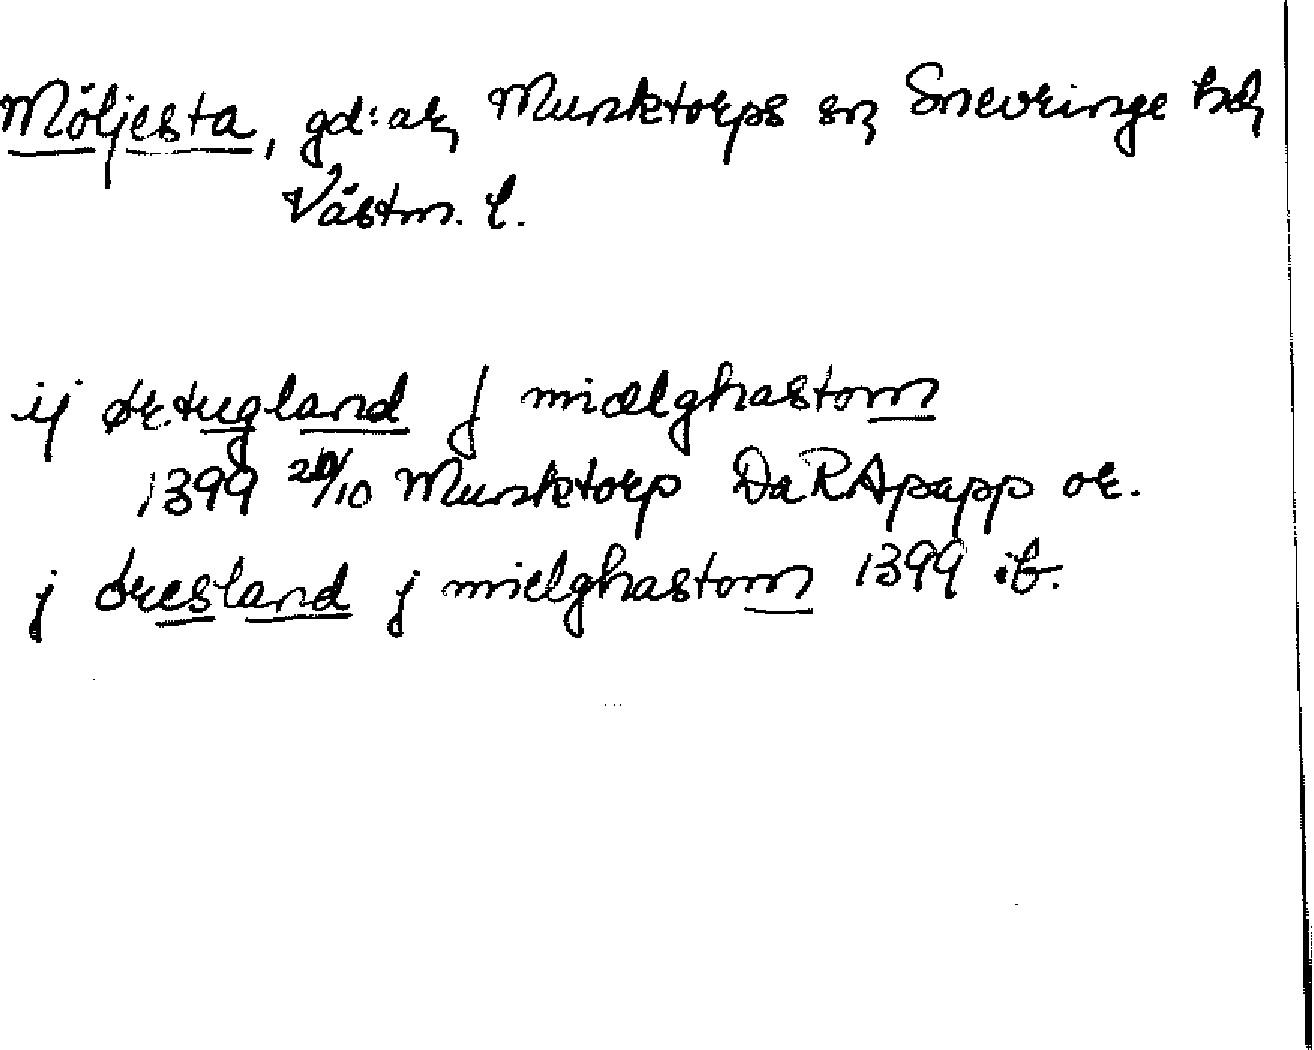 Möljesta, gd:ar, Munktorps sn, Snevringe hd,
Västm. l.
ij ørtugland j miælghastom
1399 20/10 Munktorp DaRApapp or.
j øresland j mielghastom 1399 ib.